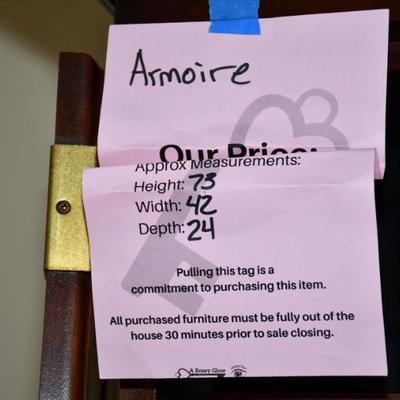 Armoire
Our Price:
Approx Measurements:
Height: 73
Width: 42
Depth: 24
Pulling this tag is a
commitment to purchasing this item.
All purchased furniture must be fully out of the
house 30 minutes prior to sale closing.
A Rosey Glow